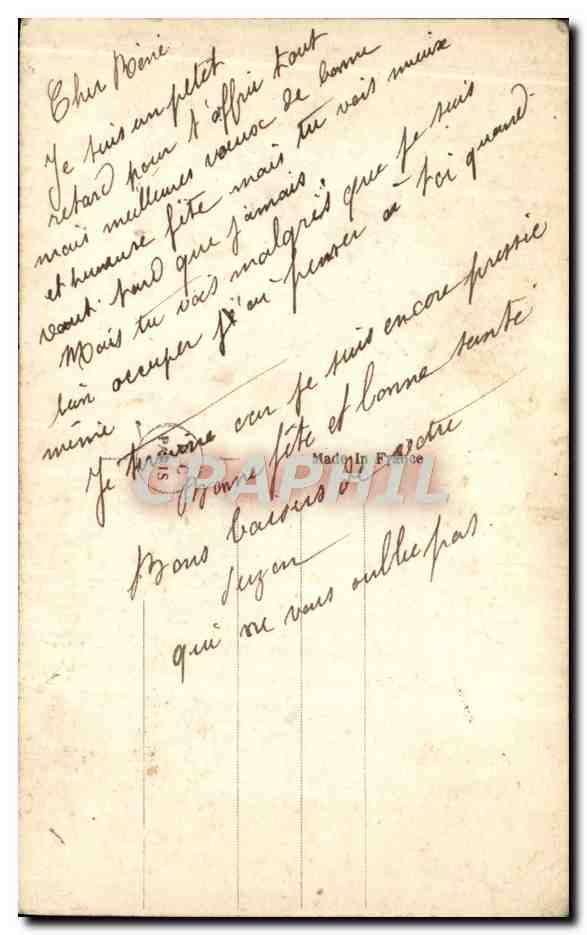 Cher Réné
Je suis un petit
retard pour t'offrir tout
mais meilleures vœux de bonne
et heureuse fête mais tu vois mieux
vaut tard que jamais.
Mais tu vois malgrés que je suis
bien occuper j'ai penser a toi quand
même
Je termine car je suis encore pressée
Bonne fête et bonne santé
Made In France
PARIS
CPARHIL
Bons baisers de votre
Suzon
qui ne vous oublie pas.